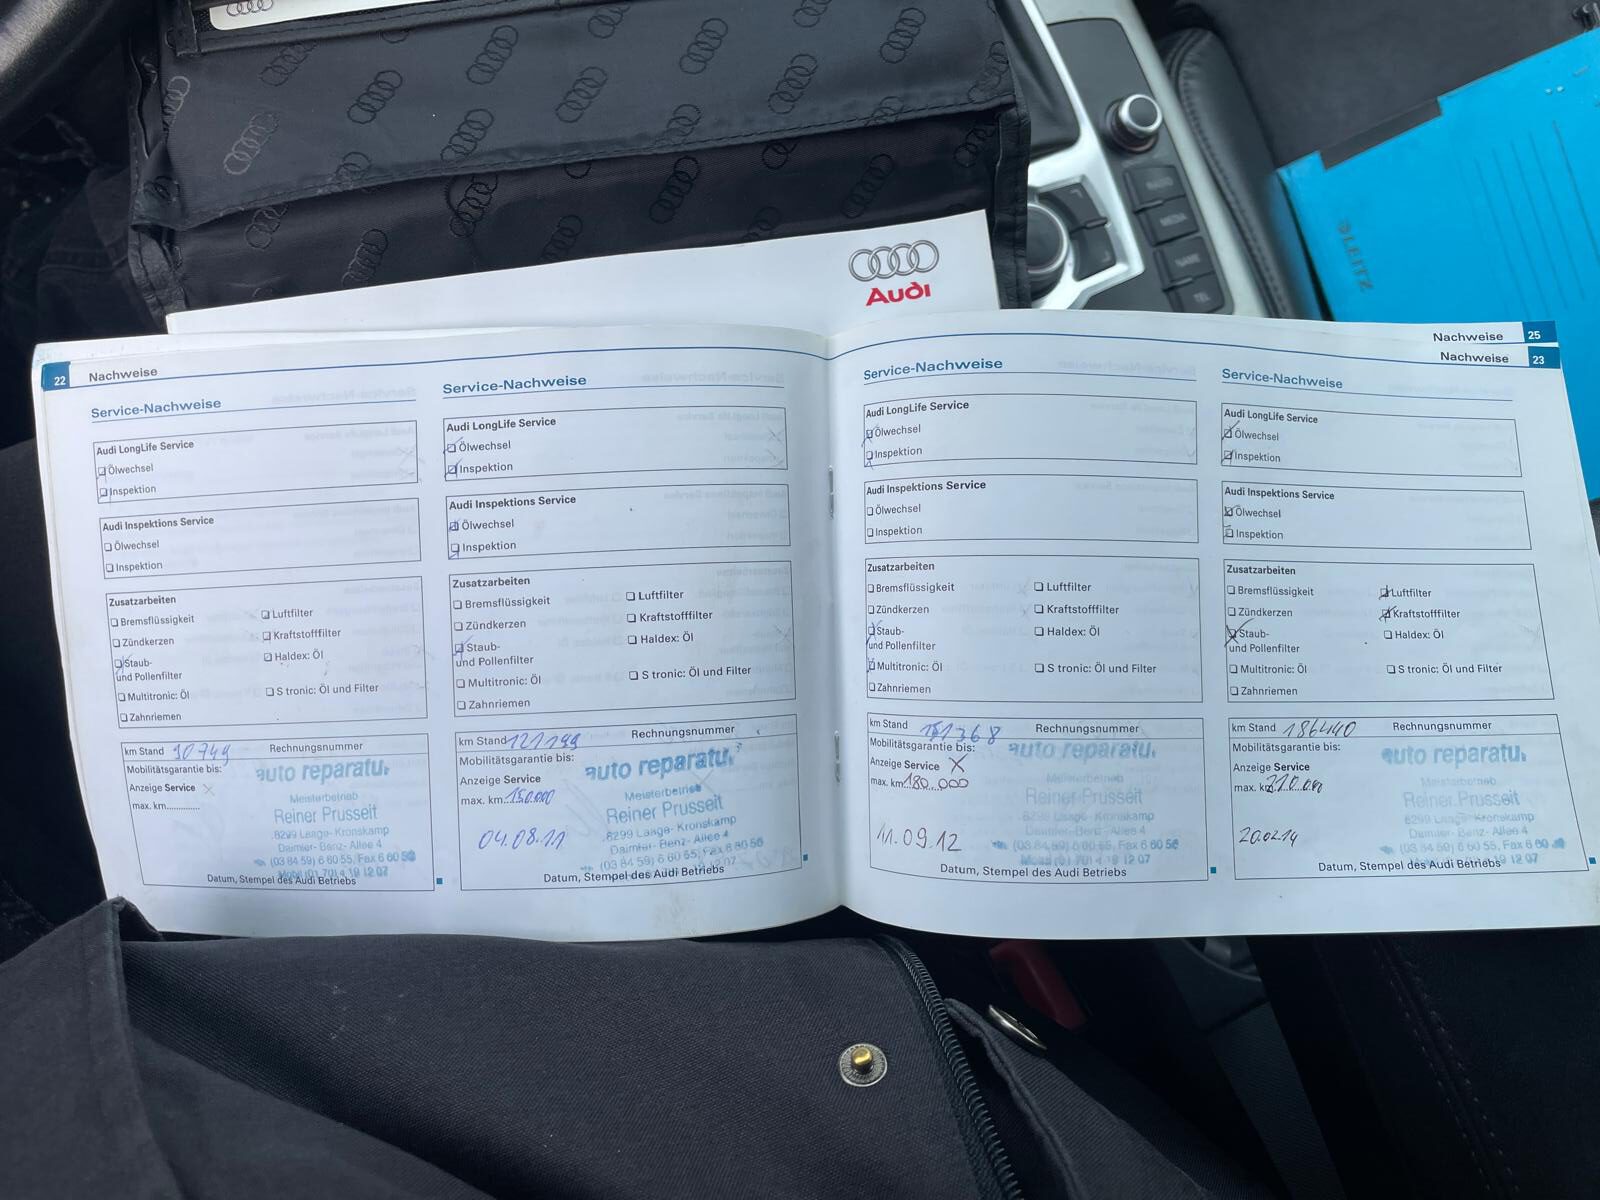 Audi
RADIO
MEDIA
NAME
TEL
LEITZ
22 Nachweise
Service-Nachweise
Audi LongLife Service
Ölwechsel
Inspektion
Audi Inspektions Service
Ölwechsel
Inspektion
Zusatzarbeiten
Bremsflüssigkeit
Luftfilter
Zündkerzen
Kraftstofffilter
Staub-
und Pollenfilter
Haldex: Öl
Multitronic: Öl
S tronic: Öl und Filter
Zahnriemen
km Stand 90749
Rechnungsnummer
Mobilitätsgarantie bis:
Anzeige Service
max. km
auto reparatu
Meisterbetrieb
Reiner Prusseit
8299 Laage- Kronskamp
Daimler- Benz- Allee 4
(03 84 59) 6 60 55, Fax 6 60 56
Mobil (01 70) 4 19 12 07
Datum, Stempel des Audi Betriebs
Service-Nachweise
Audi LongLife Service
Ölwechsel
Inspektion
Audi Inspektions Service
Ölwechsel
Inspektion
Zusatzarbeiten
Bremsflüssigkeit
Luftfilter
Zündkerzen
Kraftstofffilter
Staub-
und Pollenfilter
Haldex: Öl
Multitronic: Öl
S tronic: Öl und Filter
Zahnriemen
km Stand 121199
Rechnungsnummer
Mobilitätsgarantie bis:
Anzeige Service
max. km 150.000
auto reparatu
Meisterbetrieb
Reiner Prusseit
8299 Laage- Kronskamp
Daimler- Benz- Allee 4
(03 84 59) 6 60 55, Fax 6 60 56
04.08.11
Datum, Stempel des Audi Betriebs
Nachweise 25
Nachweise 23
Service-Nachweise
Audi LongLife Service
Ölwechsel
Inspektion
Audi Inspektions Service
Ölwechsel
Inspektion
Zusatzarbeiten
Bremsflüssigkeit
Luftfilter
Zündkerzen
Kraftstofffilter
Staub-
und Pollenfilter
Haldex: Öl
Multitronic: Öl
S tronic: Öl und Filter
Zahnriemen
km Stand 151368
Rechnungsnummer
Mobilitätsgarantie bis:
Anzeige Service X
max. km 180.000
auto reparatu
Meisterbetrieb
Reiner Prusseit
8299 Laage- Kronskamp
Daimler- Benz- Allee 4
(03 84 59) 6 60 55, Fax 6 60 56
Mobil (01 70) 4 19 12 07
11.09.12
Datum, Stempel des Audi Betriebs
Service-Nachweise
Audi LongLife Service
Ölwechsel
Inspektion
Audi Inspektions Service
Ölwechsel
Inspektion
Zusatzarbeiten
Bremsflüssigkeit
Luftfilter
Zündkerzen
Kraftstofffilter
Staub-
und Pollenfilter
Haldex: Öl
Multitronic: Öl
S tronic: Öl und Filter
Zahnriemen
km Stand 186440
Rechnungsnummer
Mobilitätsgarantie bis:
Anzeige Service
max. km 210.000
auto reparatu
Meisterbetrieb
Reiner Prusseit
8299 Laage- Kronskamp
Daimler- Benz- Allee 4
(03 84 59) 6 60 55, Fax 6 60
Mobil (01 70) 4 19 12 07
20.02.14
Datum, Stempel des Audi Betriebs